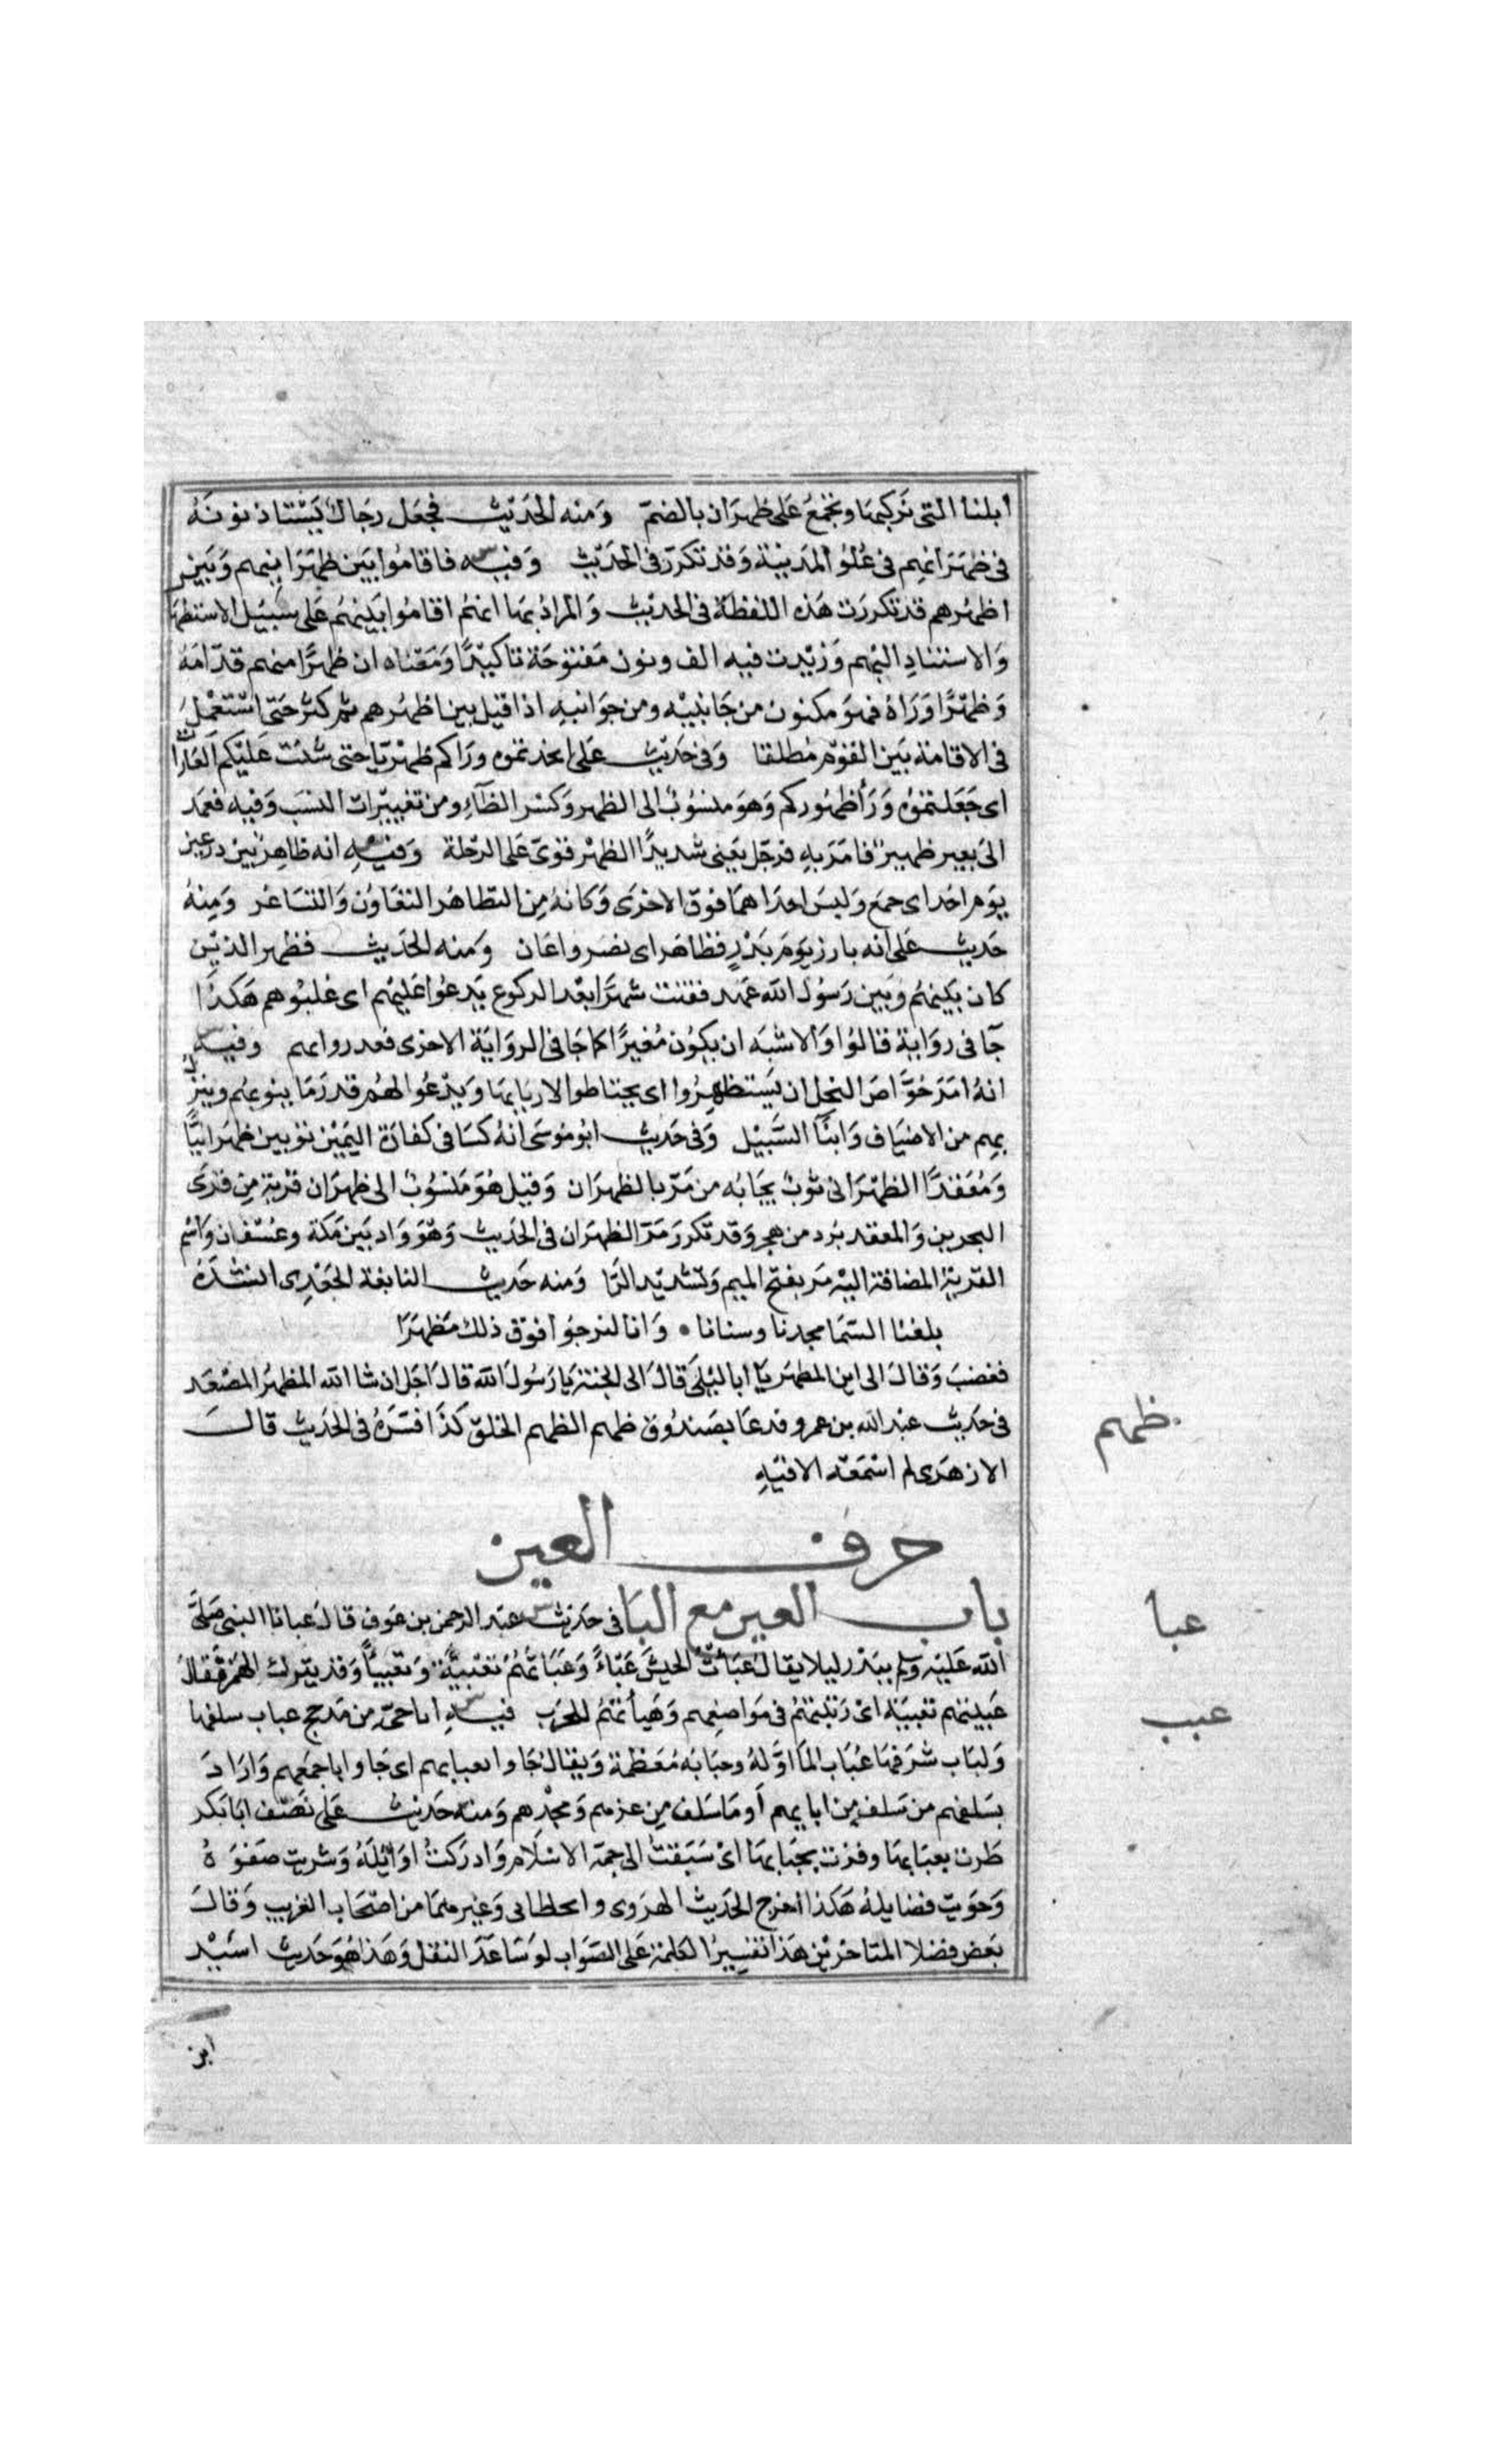 ابلنا التى نركبها وتجمع على ظهران بالضم ومنه الحديث فجعل رجال يستاذنونه
فى ظهرانهم فى علو المدينة وقد تكرر فى الحديث وفيه فاقاموا بين ظهرانيهم وبين
اظهرهم قد تكررت هذه اللفظة فى الحديث والمراد بها انهم اقاموا بينهم على سبيل الاستظهار
والاستناد اليهم وزيدت فيه الف ونون مفتوحة تاكيدًا ومعناه ان ظهرًا منهم قدامه
وظهرًا وراه فهو مكنون من جانبيه ومن جوانبه اذا قيل بين اظهرهم ثم كثر حتى استعمل
فى الاقامة بين القوم مطلقا وفى حديث على اتخذتموه وراكم ظهريا حتى شنت عليكم الغارات
اى جعلتموه ورا ظهوركم وهو منسوب الى الظهر وكسر الظاء من تغييرات النسب وفيه فعمد
الى بعير ظهير فامر به فرحل يعنى شديدًا الظهر قوى على الرحلة وفيه انه ظاهر بين درعين
يوم احد اى جمع ولبس احداهما فوق الاخرى وكانه من التظاهر التعاون والتساعد ومنه
حديث على انه بارز يوم بدر فظاهر اى نصر واعان ومنه الحديث فظهر الذين
كان بينهم وبين رسول الله عهد فقنت شهرًا بعد الركوع يدعوا عليهم اى غلبوهم هكذا
جآ فى رواية قالوا والاشبه ان يكون مغيرًا كما جا فى الرواية الاخرى فغدروا بهم وفيه
انه امر خراص النخل ان يستظهروا اى يحتاطوا لاربابها ويدعوا لهم قدر ما ينوبهم وينزل
بهم من الاضياف وابنآ السبيل وفى حديث ابو موسى انه كسا فى كفارة اليمين ثوبين ظهرانيًا
ومعقدًا الظهرانى ثوب يجا به من مر بالظهران وقيل هو منسوب الى ظهران قرية من قرى
البحرين والمعقد برد من هجر وقد تكرر مر الظهران فى الحديث وهو واد بين مكة وعسفان واسم
القرية المضافة اليه مر بفتح الميم وتشديد الرا ومنه حديث النابغة الجعدى انشده
بلغنا السما مجدنا وسنانا • وانا لنرجوا فوق ذلك مظهرا
فغضب وقال الى اين المظهر يا ابا ليلى قال الى الجنة يا رسول الله قال اجل ان شا الله المظهر المصعد
ظهم
فى حديث عبد الله بن عمرو فدعا بصندوق ظهم الظهم الخلق كذا فسره فى الحديث قال
الازهرى لم اسمعه الا فيه
حرف العين
باب العين مع البا فى حديث عبد الرحمن بن عوف قال عبانا النبى صلى
عبا
الله عليه وسلم ببدر ليلا يقال عبات الجيش عباءً وعباتهم تعبيةً وتعبيبًا وقد يترك الهمز فيقال
عبيتهم تعبية اى رتبتهم فى مواضعهم وهياتهم للحرب فيه انا حى من مذحج عباب سلفها
عبب
ولباب شرفها عباب الما اوله وحبابه معظمه ويقال جاوا بعبابهم اى جاوا باجمعهم واراد
بسلفهم من سلف من ابايهم او ما سلف من عزهم ومجدهم ومنه حديث على نصف ابا بكر
طرت بعبابها وفزت بحبابها اى سبقت الى جمة الاسلام وادركت اوائله وشربت صفوه
وحويت فضايله هكذا اخرج الحديث الهروى والخطابى وغيرهما من اصحاب الغريب وقال
بعض فضلا المتاخرين هذا تفسير الكلمة على الصواب لو ساعد النقل وهذا هو حديث اسيد
ابن